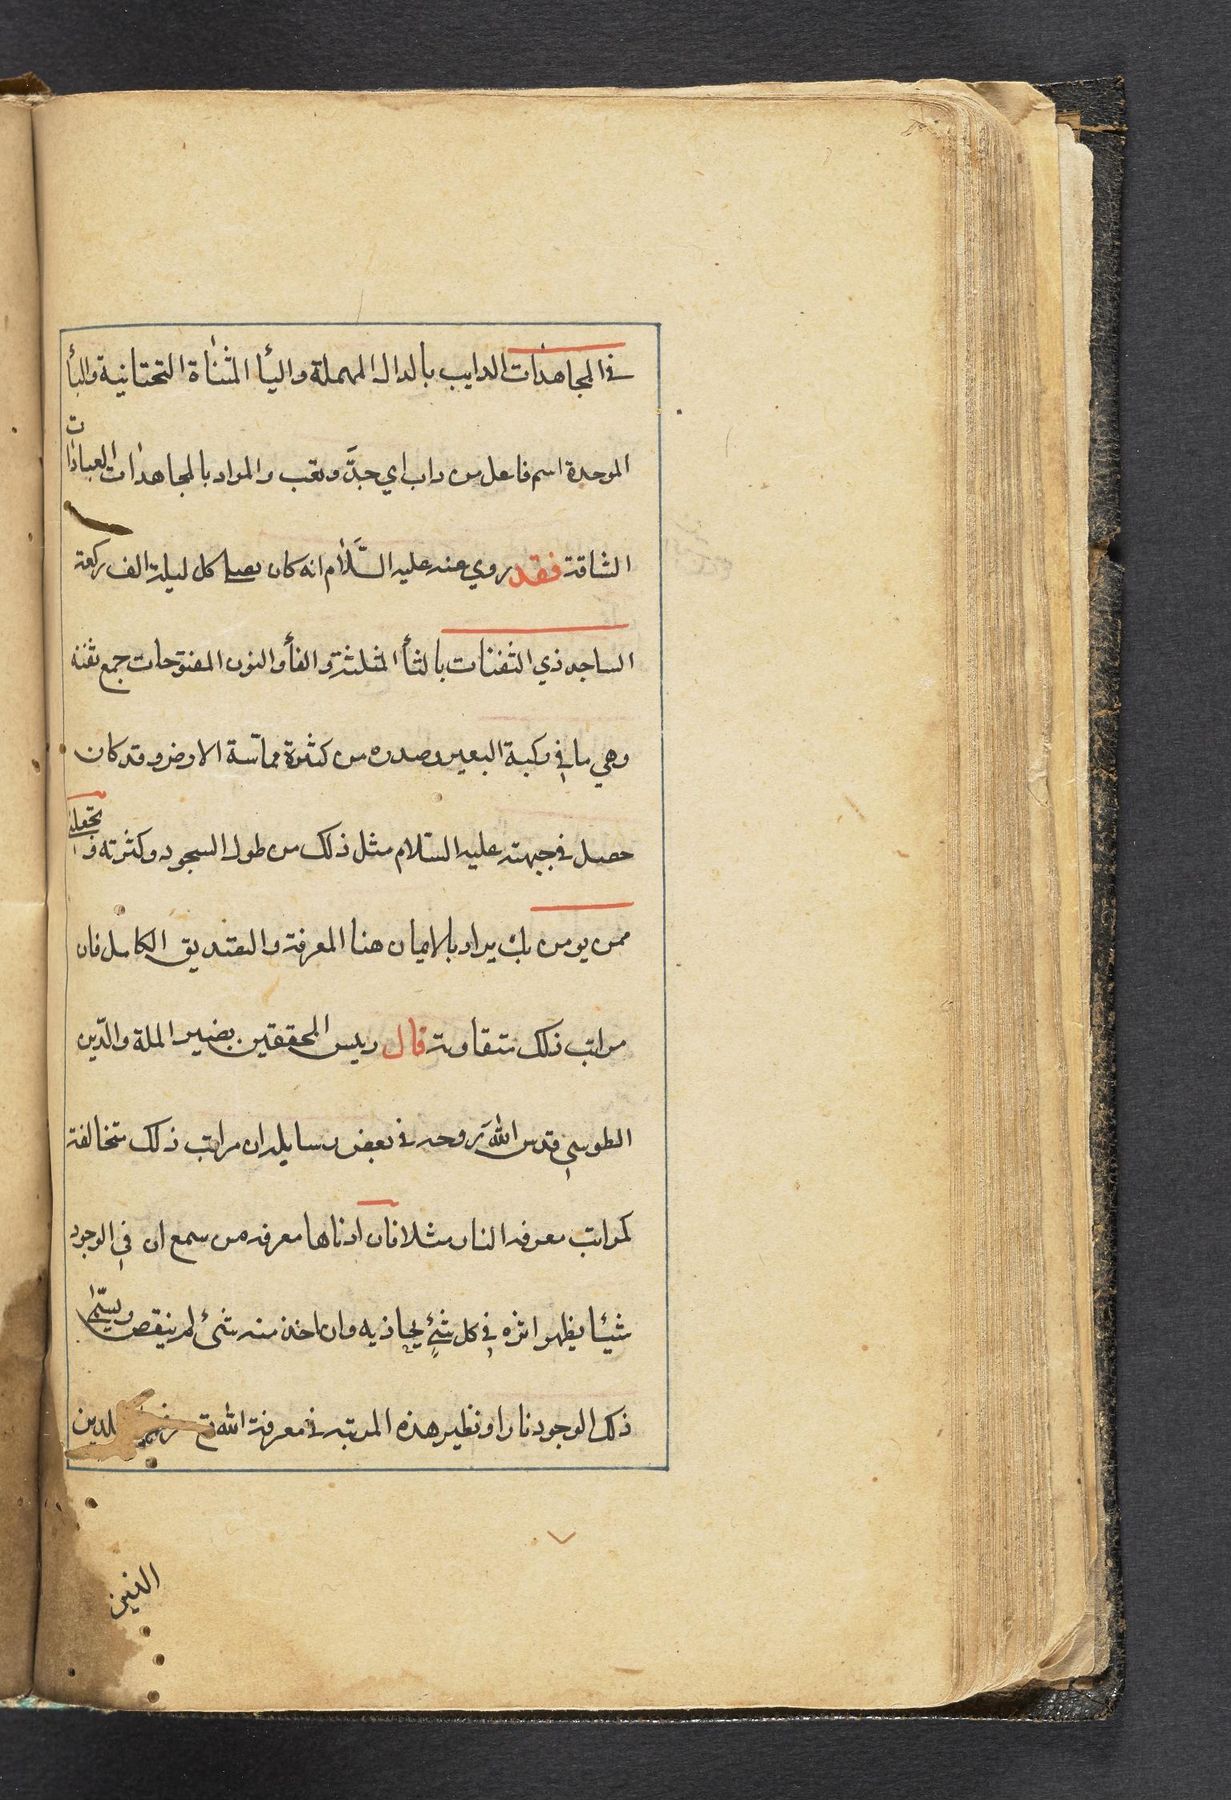 في المجاهدات الدايب بالدال المهملة واليأ المثناة التحتانية والبأ
الموحدة اسم فاعل من داب اي جدَّ وتعب والمراد بالمجاهدات العبادات
الشاقة فقد روي عنه عليه السَّلام انه كان يصلي كل ليلة الف ركعة
الساجد ذي الثفنات بالثأ المثلثة والفأ والنون المفتوحات جمع ثفنة
وهي ما في ركبة البعير وصدره من كثرة مماسّة الارض وقد كان
حصل في جبهته عليه السّلام مثل ذلك من طول السجود وكثرته وتجعلني
ممن يومن بك يراد بالايمان هنا المعرفة والتصديق الكامل فان
مراتب ذلك متفاوتة قال رييس المحققين نصير الملة والدّين
الطوسي قدس اللّه روحه في بعض رسايله ان مراتب ذلك متخالفة
كمراتب معرفة النار مثلا فان ادناها معرفة من سمع ان في الوجود
شيئا يظهر اثره في كل شئ يحاذيه وان اخذ منه شئ لم ينقص ويسمّى
ذلك الوجود نارا ونظير هذه المرتبه في معرفة الله تع لدين
الذين